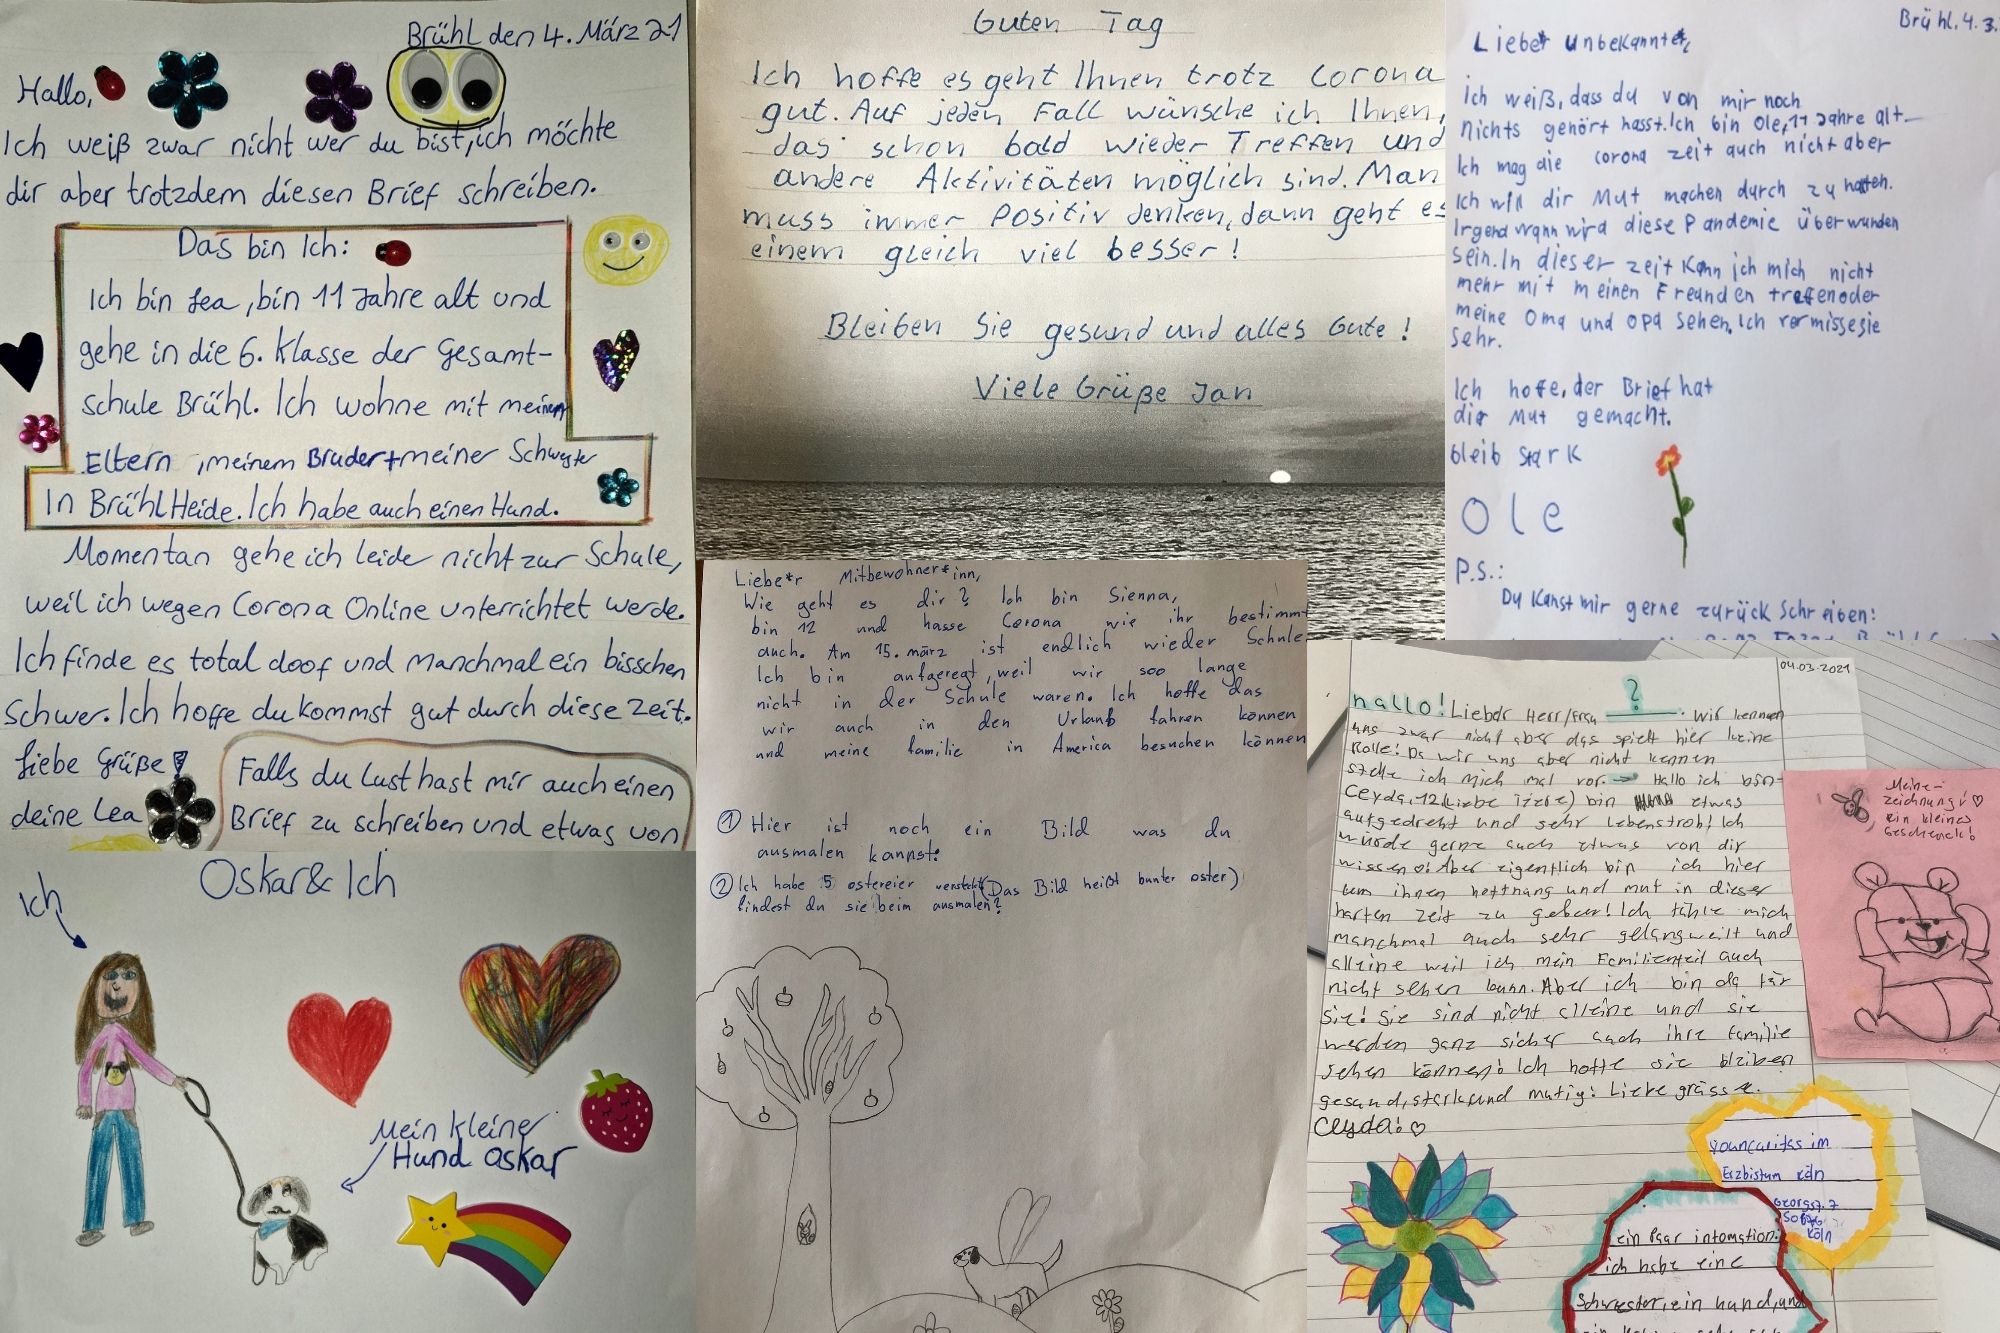 Brühl den 4. März 21
Hallo,
Ich weiß zwar nicht wer du bist, ich möchte
dir aber trotzdem diesen Brief schreiben.
Das bin Ich:
Ich bin Lea, bin 11 Jahre alt und
gehe in die 6. Klasse der Gesamt-
schule Brühl. Ich wohne mit meinen
Eltern, meinem Bruder + meiner Schwester
In Brühl Heide. Ich habe auch einen Hund.
Momentan gehe ich leide nicht zur Schule,
weil ich wegen Corona Online unterrichtet werde.
Ich finde es total doof und manchmal ein bisschen
Schwer. Ich hoffe du kommst gut durch diese Zeit.
Liebe Grüße
deine Lea
Falls du Lust hast mir auch einen
Brief zu schreiben und etwas von
Oskar & Ich
Ich
Mein kleiner
Hund Oskar
Guten Tag
Ich hoffe es geht Ihnen trotz Corona
gut. Auf jeden Fall wünsche ich Ihnen,
das schon bald wieder Treffen und
andere Aktivitäten möglich sind. Man
muss immer Positiv denken, dann geht es
einem gleich viel besser!
Bleiben Sie gesund und alles Gute!
Viele Grüße Jan
Liebe*r Mitbewohner*inn,
Wie geht es dir? Ich bin Sienna,
bin 12 und hasse Corona wie ihr bestimmt
auch. Am 15. märz ist endlich wieder Schule
Ich bin aufgeregt, weil wir soo lange
nicht in der Schule waren. Ich hoffe das
wir auch in den Urlaub fahren können
und meine familie in America besuchen können
① Hier ist noch ein Bild was du
ausmalen kannst:
② Ich habe 5 ostereier versteckt (Das Bild heißt bunter oster)
findest du sie beim ausmalen?
Brühl. 4.3.
Lieber unbekannter,
ich weiß, dass du von mir noch
nichts gehört hasst. Ich bin Ole, 11 Jahre alt.
Ich mag die corona zeit auch nicht aber
Ich will dir Mut machen durch zu halten.
Irgendwann wird diese Pandemie überwunden
sein. In dieser zeit kann ich mich nicht
mehr mit meinen Freunden treffen oder
meine Oma und Opa sehen. Ich vermisse sie
sehr.
Ich hoffe, der Brief hat
dir Mut gemacht.
bleib stark
Ole
P.S.:
Du kanst mir gerne zurück schreiben:
04.03.2021
hallo! Lieber Herr/Frau ? . Wir kennen
uns zwar nicht aber das spielt hier keine
Rolle! Da wir uns aber nicht kennen
stelle ich mich mal vor. → Hallo ich bin
Ceyda, 12 (Liebe Tiere) bin etwas
aufgedreht und sehr lebensfroh! Ich
würde gerne auch etwas von dir
wissen! Aber eigentlich bin ich hier
um ihnen hoffnung und mut in dieser
harten zeit zu geben! Ich fühle mich
manchmal auch sehr gelangweilt und
alleine weil ich mein Familienteil auch
nicht sehen kann. Aber ich bin da für
sie! Sie sind nicht alleine und sie
werden ganz sicher auch ihre familie
sehen können! Ich hoffe sie bleiben
gesund, stark und mutig! Liebe grüsse.
Ceyda! ♡
Meine
zeichnung! ♡
ein kleines
Geschenk!
youncaritas im
Erzbistum köln
Georgstr. 7
Köln
ein Paar infomation.
ich habe eine
Schwester, ein hund, und